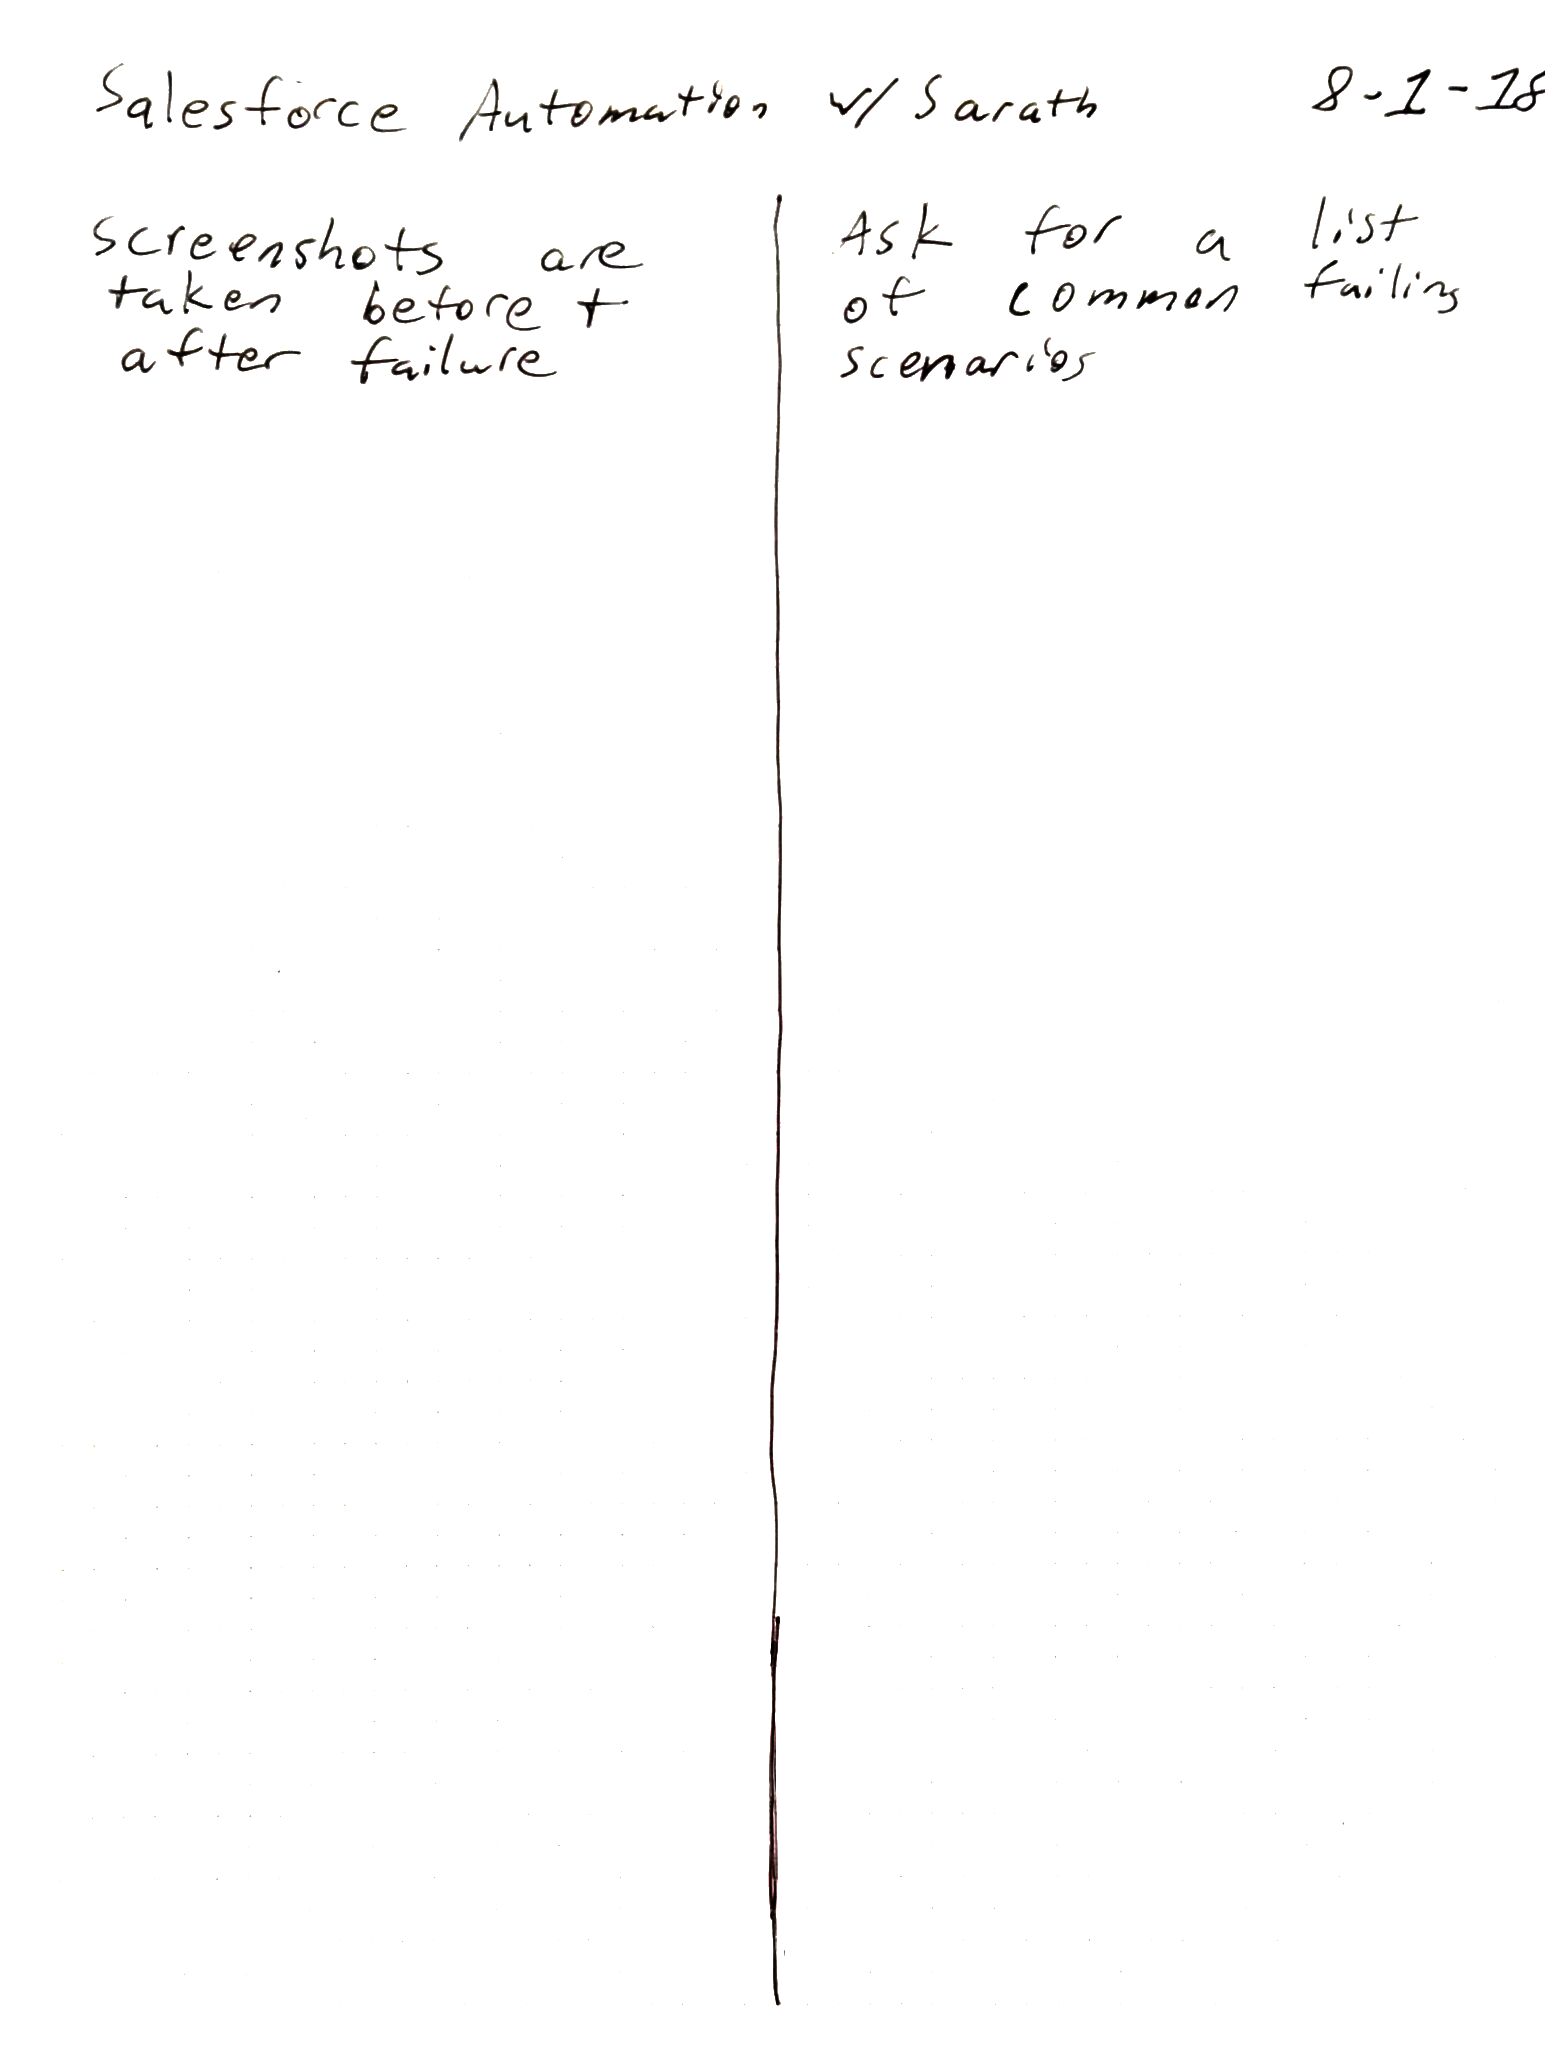 Salesforce Automation w/ Sarath 8-1-18
screenshots are
taken before +
after failure
Ask for a list
of common failing
scenarios